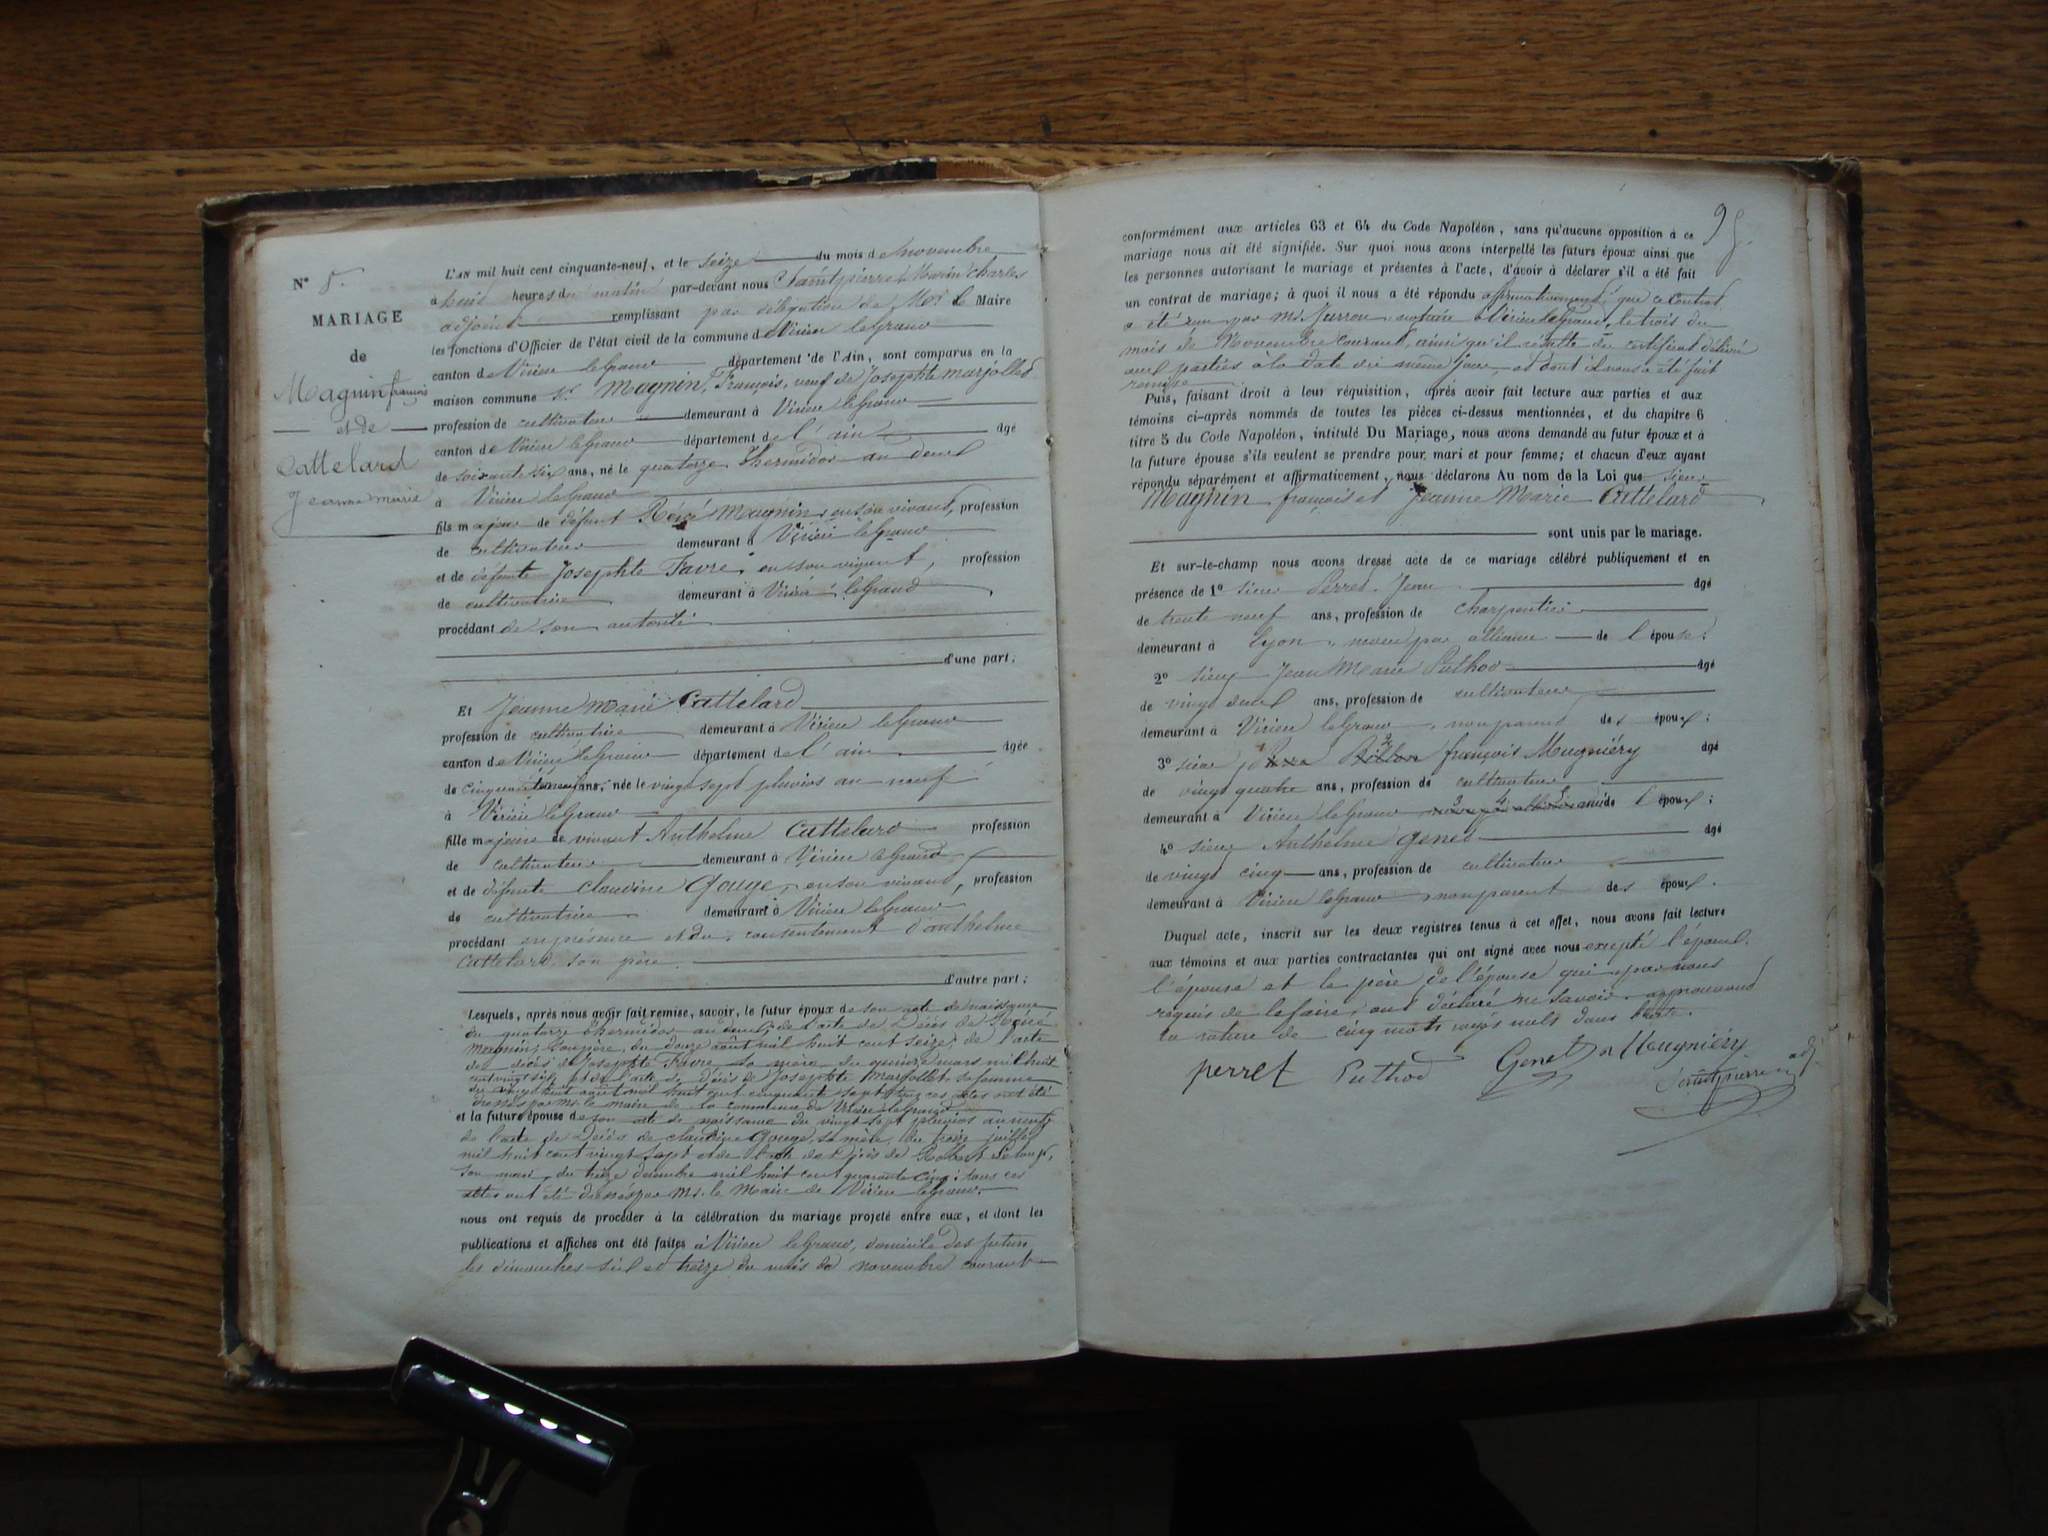 N° 8.
MARIAGE
de
Magnin françois
et de
Cattelard
Jeanne marie
L'AN mil huit cent cinquante-neuf, et le seize du mois de Novembre
à huit heures du matin par-devant nous Saintpierre, Marin Charles
adjoint remplissant par délégation de Mr le Maire
les fonctions d'Officier de l'état civil de la commune de Virieu leGrand
canton de Virieu leGrand département de l'Ain, sont comparus en la
maison commune Sr Magnin, François, veuf de Josephte marjollet
profession de cultivateur demeurant à Virieu leGrand
canton de Virieu leGrand département de l'ain âgé
de soixante six ans, né le quatorze Thermidor an deux
à Virieu leGrand
fils majeur de défunt Magnin, en son vivant, profession
de cultivateur demeurant à Virieu leGrand
et de défunte Josephte Favre, en son vivant, profession
de cultivatrice demeurant à Virieu leGrand
procédant de son autorité
d'une part;
Et Jeanne Marie Cattelard
profession de cultivatrice demeurant à Virieu leGrand
canton de Virieu leGrand département de l'ain âgée
de cinquante ans, née le vingt sept pluvios an neuf
à Virieu leGrand
fille majeure de vivant Anthelme Cattelard profession
de cultivateur demeurant à Virieu leGrand
et de défunte Claudine Gouge, en son vivant, profession
de cultivatrice demeurant à Virieu leGrand
procédant en présence et du consentement d'anthelme
Cattelard son père
d'autre part;
Lesquels, après nous avoir fait remise, savoir, le futur époux de son acte de naissance
du quatorze thermidor an deux, de l'acte de Décès de
Magnin, son père, du douze août mil huit cent seize, de l'acte
de décès de Josephte Favre sa mère du quinze mars mil huit
cent vingt six, et de l'acte de Décès de Josephte Marjollet sa femme
du vingt huit août mil huit cent cinquante sept, tous ces actes ont été
dressés par Mr le maire de la commune de Virieu leGrand
et la future épouse de son acte de naissance du vingt sept pluvios an neuf
de l'acte de Décès de Claudine Gouge, sa mère, du trois juillet
mil huit cent vingt sept et de l'acte de Décès de Robert
son mari, du treize decembre mil huit cent quarante cinq: tous ces
actes ont été dressés par Mr le Maire de Virieu leGrand.
nous ont requis de procéder à la célébration du mariage projeté entre eux, et dont les
publications et affiches ont été faites à Virieu leGrand, domicile des futurs
les dimanches six et treize du mois de novembre courant
9
conformément aux articles 63 et 64 du Code Napoléon, sans qu'aucune opposition à ce
mariage nous ait été signifiée. Sur quoi nous avons interpellé les futurs époux ainsi que
les personnes autorisant le mariage et présentes à l'acte, d'avoir à déclarer s'il a été fait
un contrat de mariage; à quoi il nous a été répondu affirmativement, que ce Contrat
a été reçu par Me notaire à Virieu leGrand, le trois du
mois de Novembre courant, ainsi qu'il résulte du certificat délivré
aux parties à la date du même jour, et dont il nous a été fait
remise
Puis, faisant droit à leur réquisition, après avoir fait lecture aux parties et aux
témoins ci-après nommés de toutes les pièces ci-dessus mentionnées, et du chapitre 6
titre 5 du Code Napoléon, intitulé Du Mariage, nous avons demandé au futur époux et à
la future épouse s'ils veulent se prendre pour mari et pour femme; et chacun d'eux ayant
répondu séparément et affirmativement, nous déclarons Au nom de la Loi que sieur
Magnin françois et Jeanne Marie Cattelard
sont unis par le mariage.
Et sur-le-champ nous avons dressé acte de ce mariage célébré publiquement et en
présence de 1° sieur Perret Jean âgé
de trente neuf ans, profession de charpentier
demeurant à Lyon, neveu par alliance de l'épouse;
2° sieur Jean Marie Puthod âgé
de vingt deux ans, profession de cultivateur
demeurant à Virieu leGrand, non parent des époux;
3° sieur françois Mugniéry âgé
de vingt quatre ans, profession de cultivateur
demeurant à Virieu leGrand ami de l'époux;
4° sieur Anthelme Genet âgé
de vingt cinq ans, profession de cultivateur
demeurant à Virieu leGrand, non parent des époux.
Duquel acte, inscrit sur les deux registres tenus à cet effet, nous avons fait lecture
aux témoins et aux parties contractantes qui ont signé avec nous excepté l'époux,
l'épouse et le père de l'épouse qui par nous
requis de le faire, ont déclaré ne savoir. approuvant
la rature de cinq mots rayés nuls dans l'acte.
perret Puthod Genet Mugniéry
Saintpierre adj.